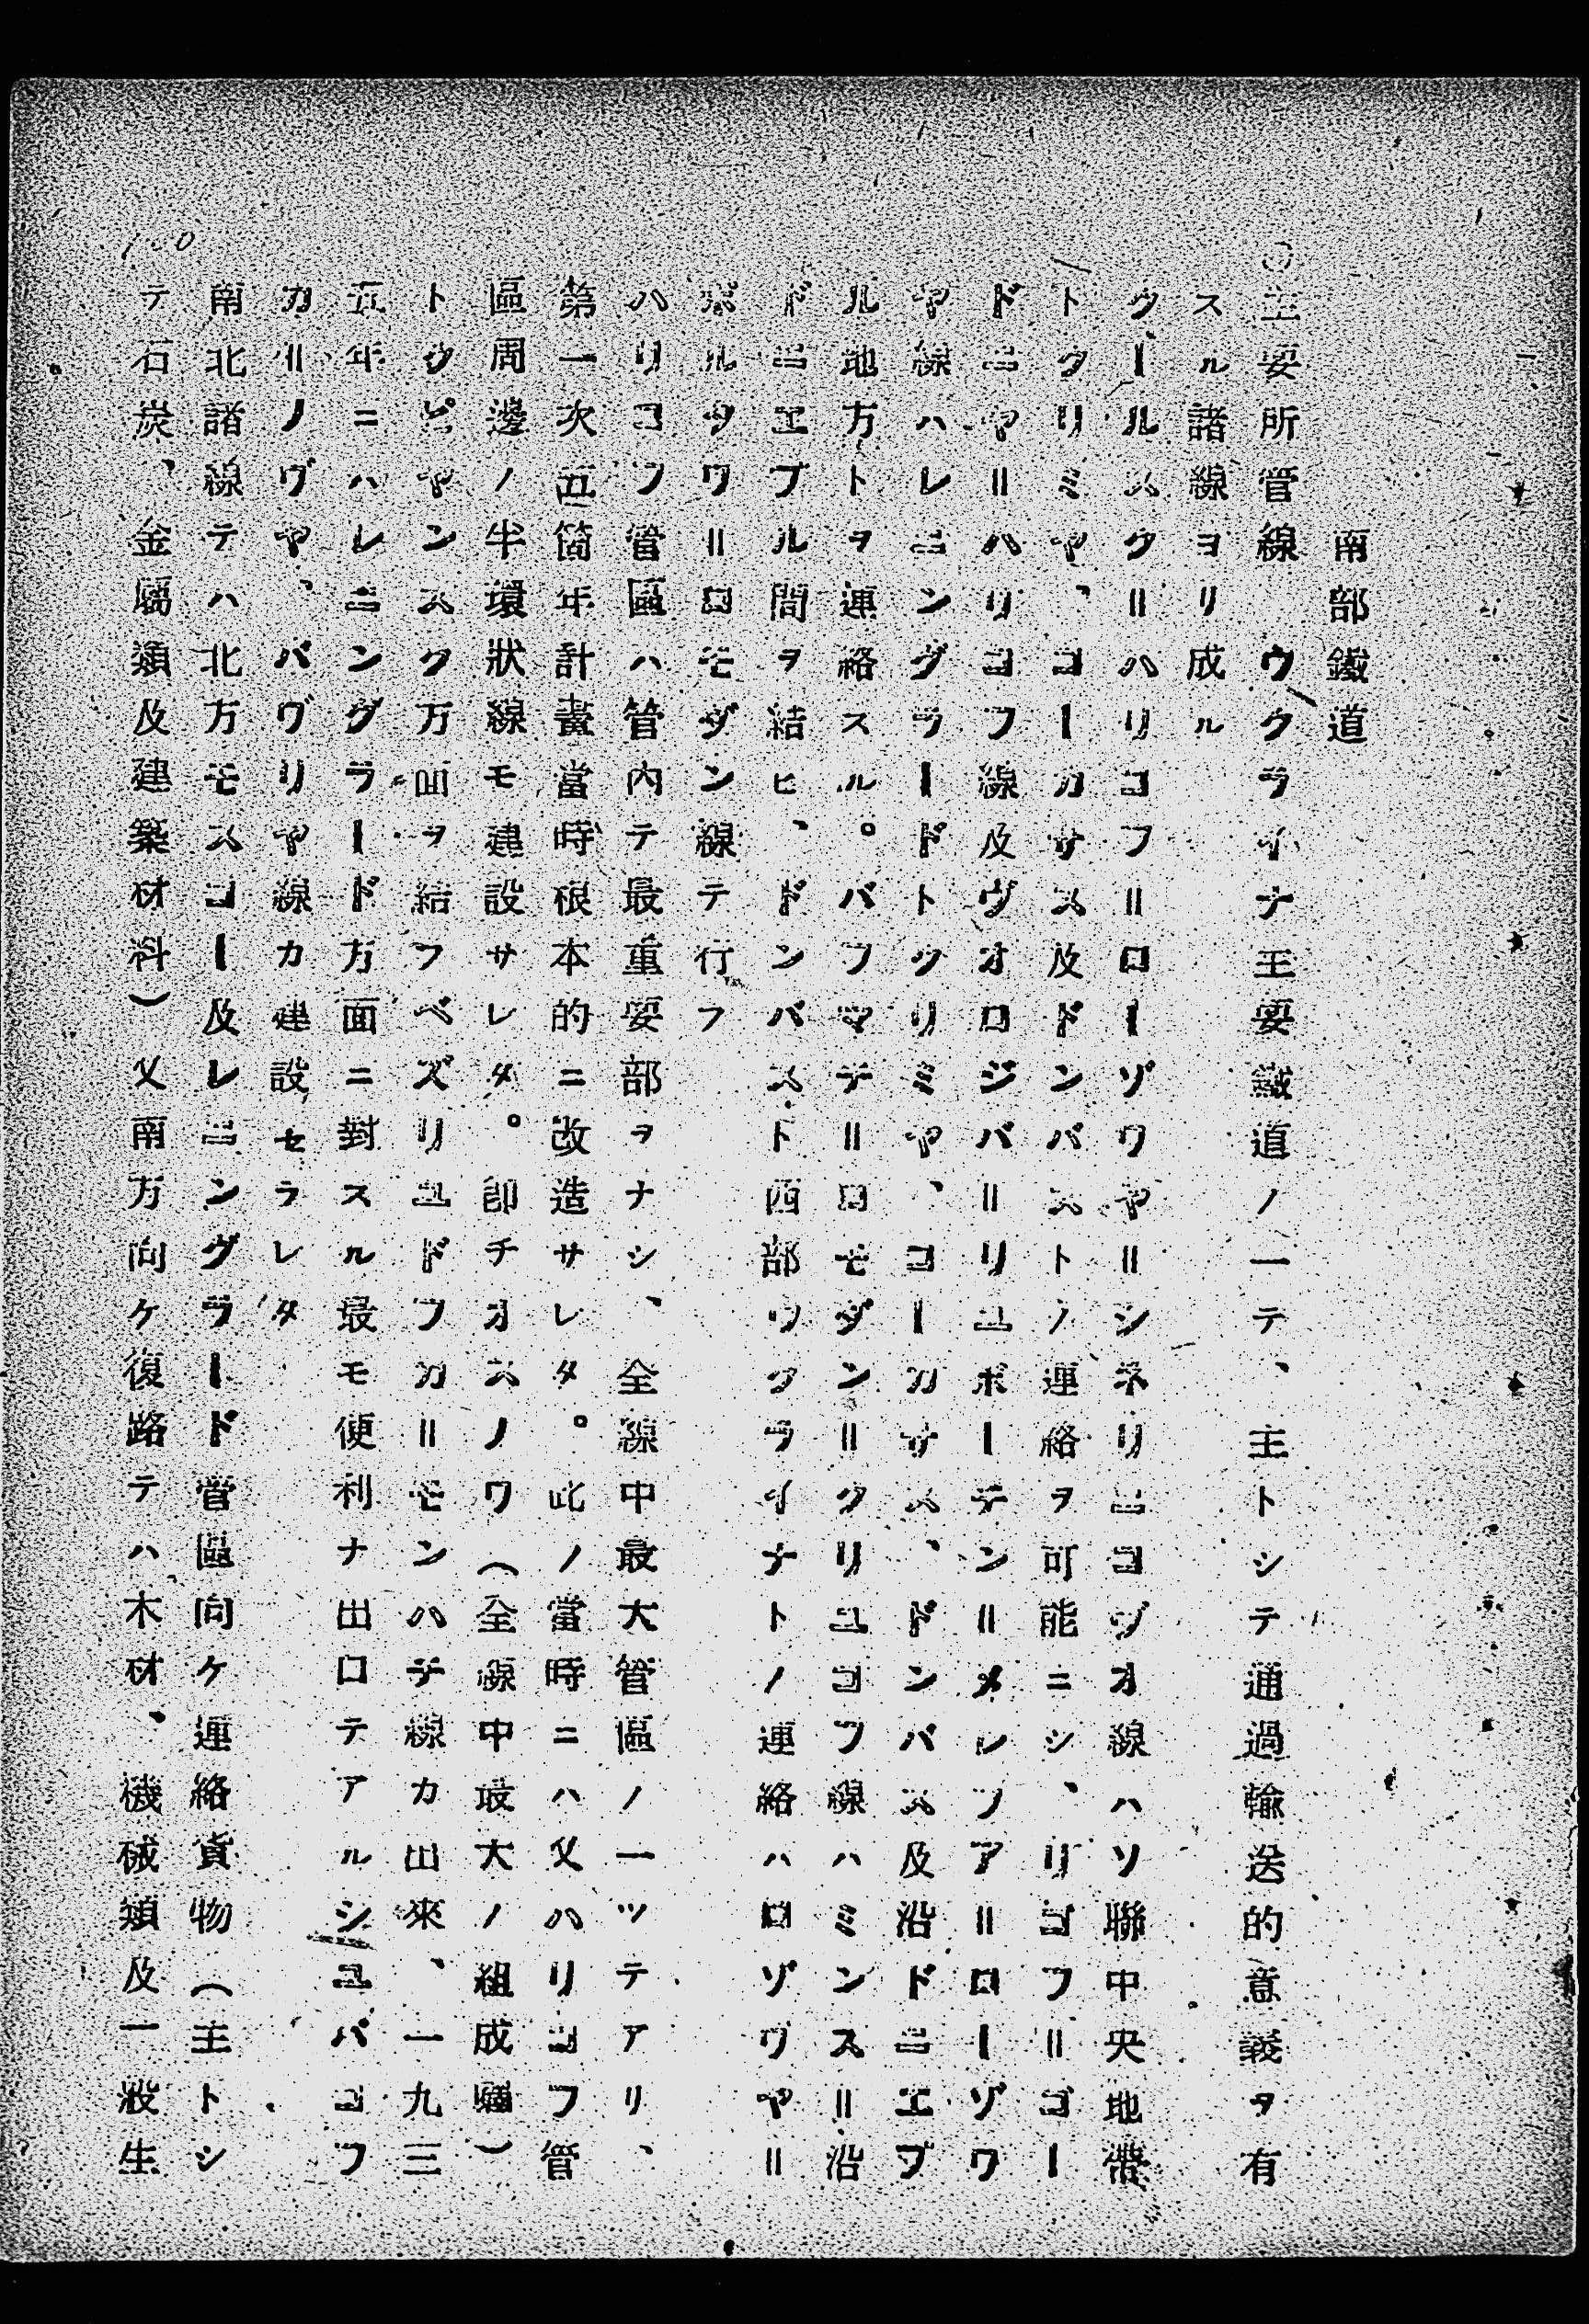 南部鐵道
主要所管線　ウクライナ主要鐵道ノ一テ、主トシテ通過輸送的意義ヲ有
スル諸線ヨリ成ル
クールスク＝ハリコフ＝ロ―ゾワヤ＝シネリニコヴオ線ハソ聯中央地帶
トクリミヤ、コーカサス及ドンバストノ連絡ヲ可能ニシ、リゴフ＝ゴー
ドニヤ＝ハリコフ線及ヴオロジバ＝リユボーテン＝メレフア＝ロ―ゾワ
ヤ線ハレニングラードトクリミヤ、コーカサス、ドンバス及沿ドニエプ
ル地方トヲ連絡スル。バフマチ＝ロモダン＝クリユコフ線ハミンス＝沿
ドニエプル間ヲ結ヒ、ドンバスト西部ウクライナトノ連絡ハロゾワヤ＝
ポルタワ＝ロモダン線テ行フ
ハリコフ管區ハ管內テ最重要部ヲナシ、全線中最大管區ノ一ツテアリ、
第一次五箇年計畫當時根本的ニ改造サレタ。此ノ當時ニハ又ハリコフ管
區周邊ノ半環狀線モ建設サレタ。卽チオスノワ（全線中最大ノ組成驛）
トクピヤンスク方面ヲ結フベズリユドフカ＝モンハチ線カ出來、一九三
五年ニハレニングラード方面ニ對スル最モ便利ナ出口テアルシユバコフ
カ＝ノヴヤ、バヴリヤ線カ建設セラレタ
南北諸線テハ北方モスコー及レニングラード管區向ケ連絡貨物（主トシ
テ石炭、金屬類及建築材料）又南方向ケ復路テハ木材、機械類及一般生
100